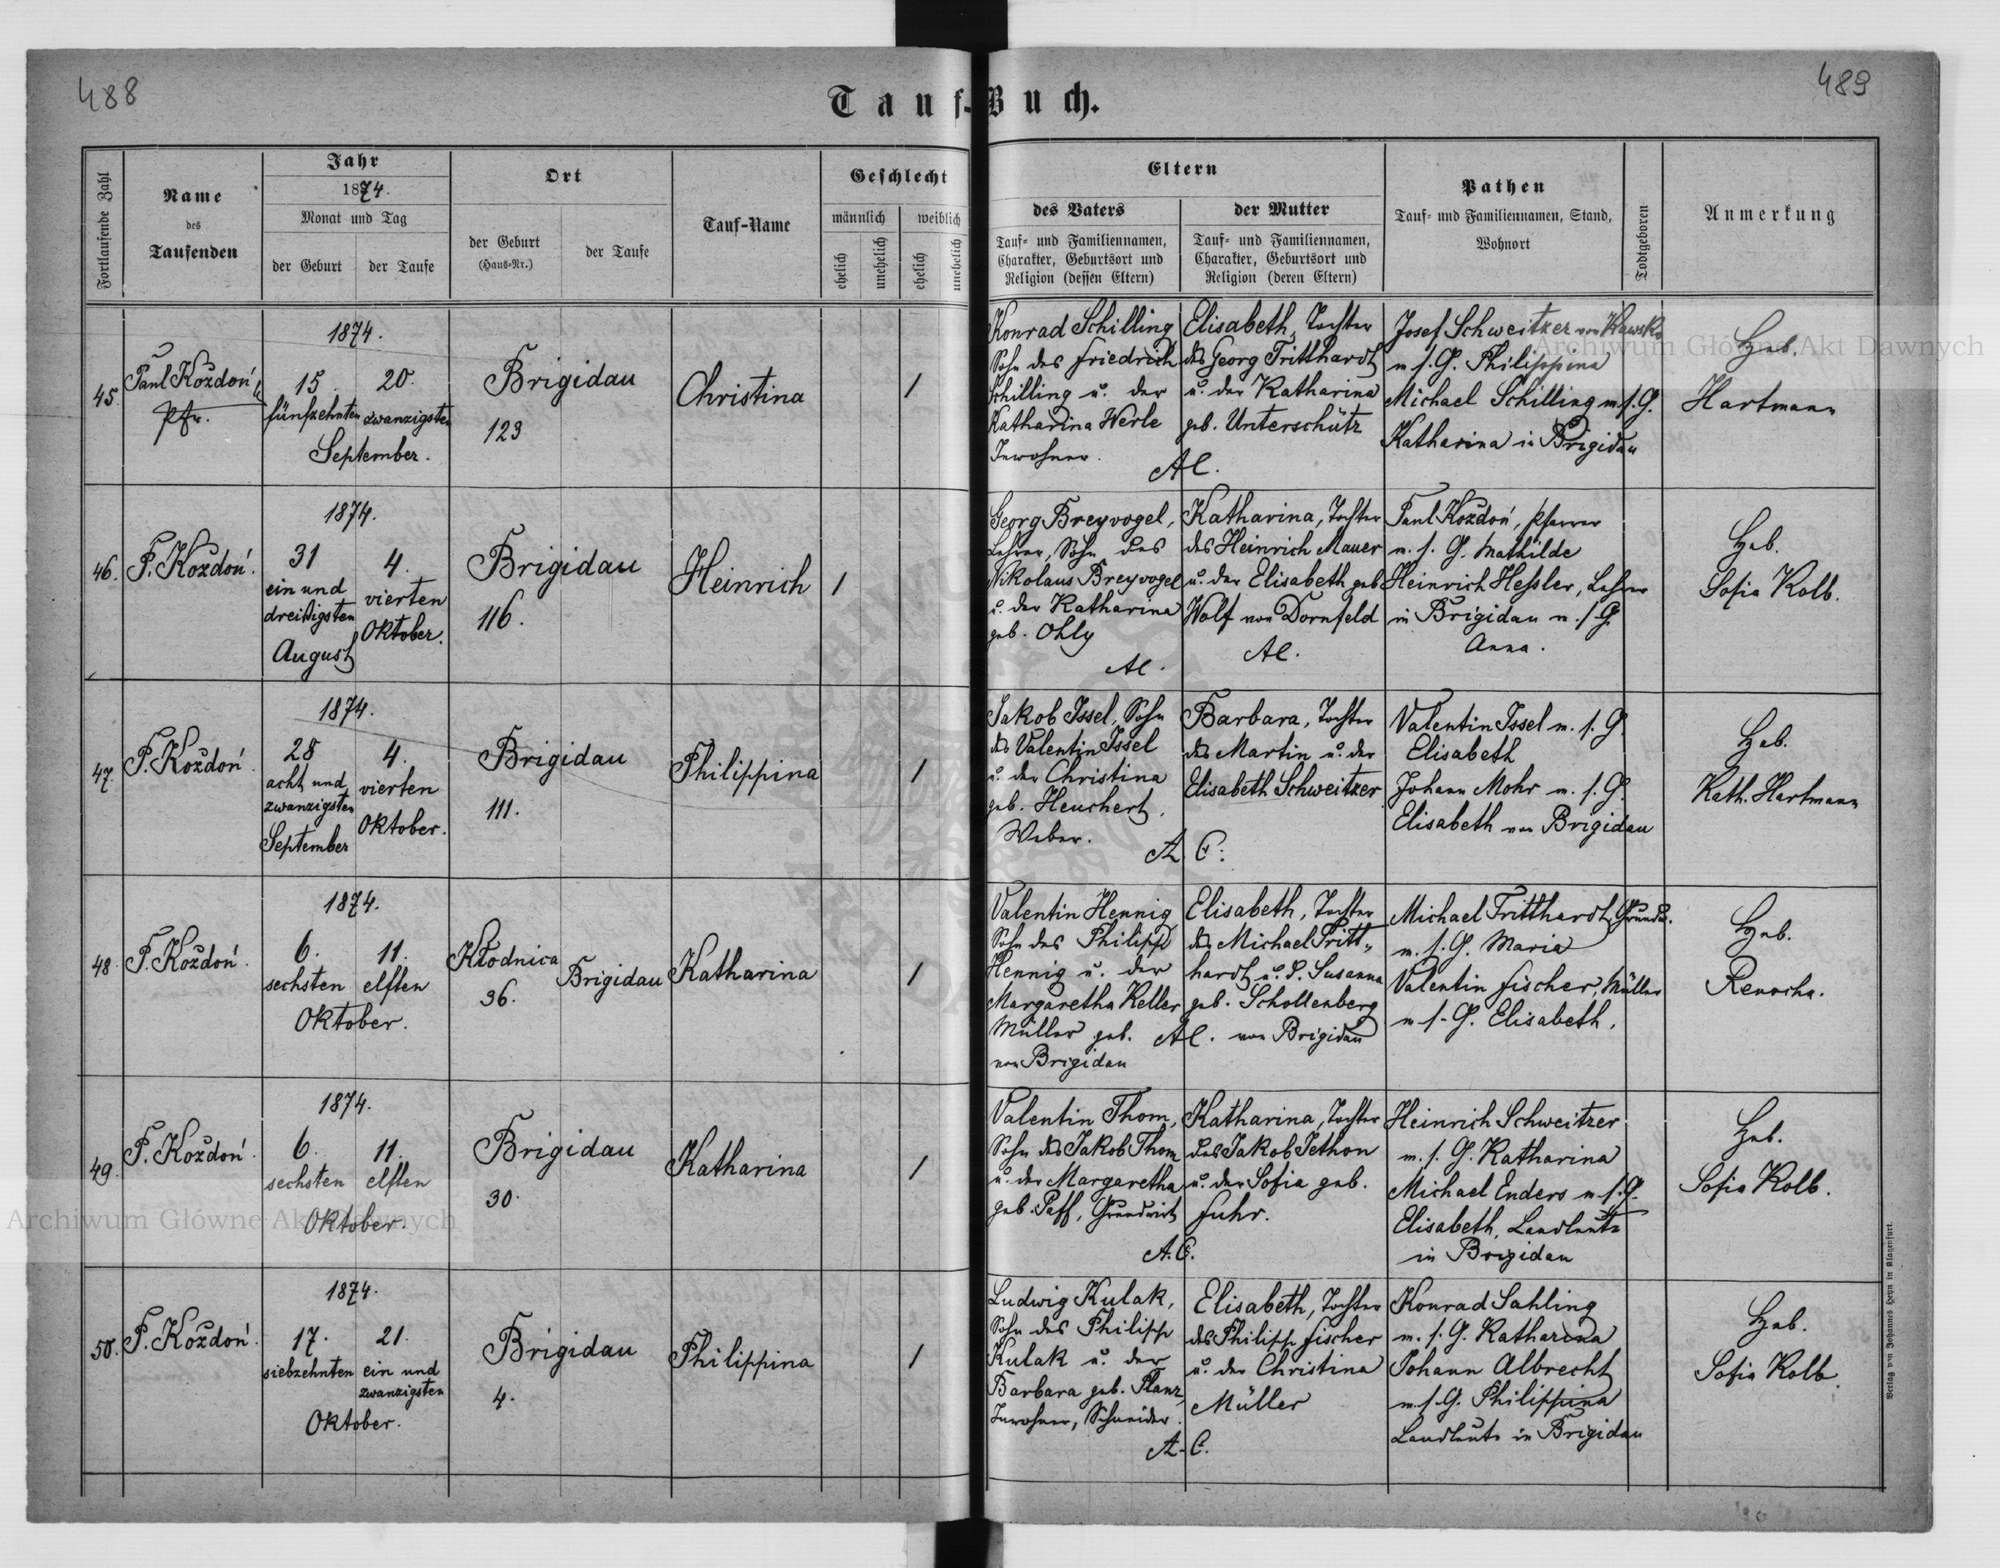 488
489
Tauf-Buch.
Fortlaufende Zahl
Name
des
Taufenden
Jahr
1874.
Monat und Tag
der Geburt
der Taufe
Ort
der Geburt
(Haus-Nr.)
der Taufe
Tauf-Name
Geschlecht
männlich
weiblich
ehelich
unehelich
ehelich
unehelich
Eltern
des Vaters
Tauf- und Familiennamen,
Charakter, Geburtsort und
Religion (dessen Eltern)
der Mutter
Tauf- und Familiennamen,
Charakter, Geburtsort und
Religion (deren Eltern)
Pathen
Tauf- und Familiennamen, Stand,
Wohnort
Todtgeboren
Anmerkung
45.
Paul Kozdoń
Pfr.
1874.
15. 20.
fünfzehnten zwanzigsten
September.
Brigidau
123
Christina
1
Konrad Schilling
Sohn des Friedrich
Schilling u. der
Katharina Werle
Inwohner.
Elisabeth, Tochter
des Georg Tritthardt
u. der Katharina
geb. Unterschütz
AC.
Josef Schweitzer von
m. s. G. Philippina
Michael Schilling m. s. G.
Katharina in Brigidau
Heb.
Hartmann
46.
P. Kozdoń.
1874.
31 4.
ein und
dreißigsten
August
vierten
Oktober.
Brigidau
116.
Heinrich
1
Georg Breyvogel,
Lehrer, Sohn des
Nikolaus Breyvogel
u. der Katharina
geb. Ohly
AC.
Katharina, Tochter
des Heinrich Mauer
u. der Elisabeth geb.
Wolf von Dornfeld
AC.
Paul Kozdoń, Pfarrer
m. s. G. Mathilde
Heinrich Heßler, Lehrer
in Brigidau m. s. G.
Anna.
Heb.
Sofia Kolb.
47.
P. Kozdoń.
1874.
28 4.
acht und
zwanzigsten
September
vierten
Oktober.
Brigidau
111.
Philippina
1
Jakob Issel, Sohn
des Valentin Issel
u. der Christina
geb. Heuchert,
Weber.
Barbara, Tochter
des Martin u. der
Elisabeth Schweitzer
A. C.
Valentin Issel m. s. G.
Elisabeth
Johann Mohr m. s. G.
Elisabeth von Brigidau
Heb.
Kath. Hartmann
48.
P. Kozdoń.
1874.
6. 11.
sechsten elften
Oktober.
Kłodnica
36.
Brigidau
Katharina
1
Valentin Hennig
Sohn des Philipp
Hennig u. der
Margaretha Keller
Müller geb.
von Brigidau
Elisabeth, Tochter
des Michael Tritt-
hardt u. d. Susanna
geb. Schollenberg
AC. von Brigidau
Michael Tritthardt, Grundw.
m. s. G. Maria
Valentin Fischer, Müller
m. s. G. Elisabeth,
Heb.
49.
P. Kozdoń.
1874.
6. 11.
sechsten elften
Oktober.
Brigidau
30.
Katharina
1
Valentin Thom,
Sohn des Jakob Thom
u. der Margaretha
geb. Paff, Grundwirt
Katharina, Tochter
des Jakob Jethon
u. der Sofia geb.
Fuhr.
A. C.
Heinrich Schweitzer
m. s. G. Katharina
Michael Enders m. s. G.
Elisabeth, Landleute
in Brigidau
Heb.
Sofia Kolb.
50.
P. Kozdoń.
1874.
17. 21.
siebzehnten ein und
zwanzigsten
Oktober.
Brigidau
4.
Philippina
1
Ludwig Kulak,
Sohn des Philipp
Kulak u. der
Barbara geb. Planz,
Inwohner, Schneider.
Elisabeth, Tochter
des Philipp Fischer
u. der Christina
Müller
A. C.
Konrad Sahling
m. s. G. Katharina
Johann Albrecht
m. s. G. Philippina
Landleute in Brigidau
Heb.
Sofia Kolb.
Verlag von Johannes Heyn in Klagenfurt.
Archiwum Główne Akt Dawnych
Archiwum Główne Akt Dawnych